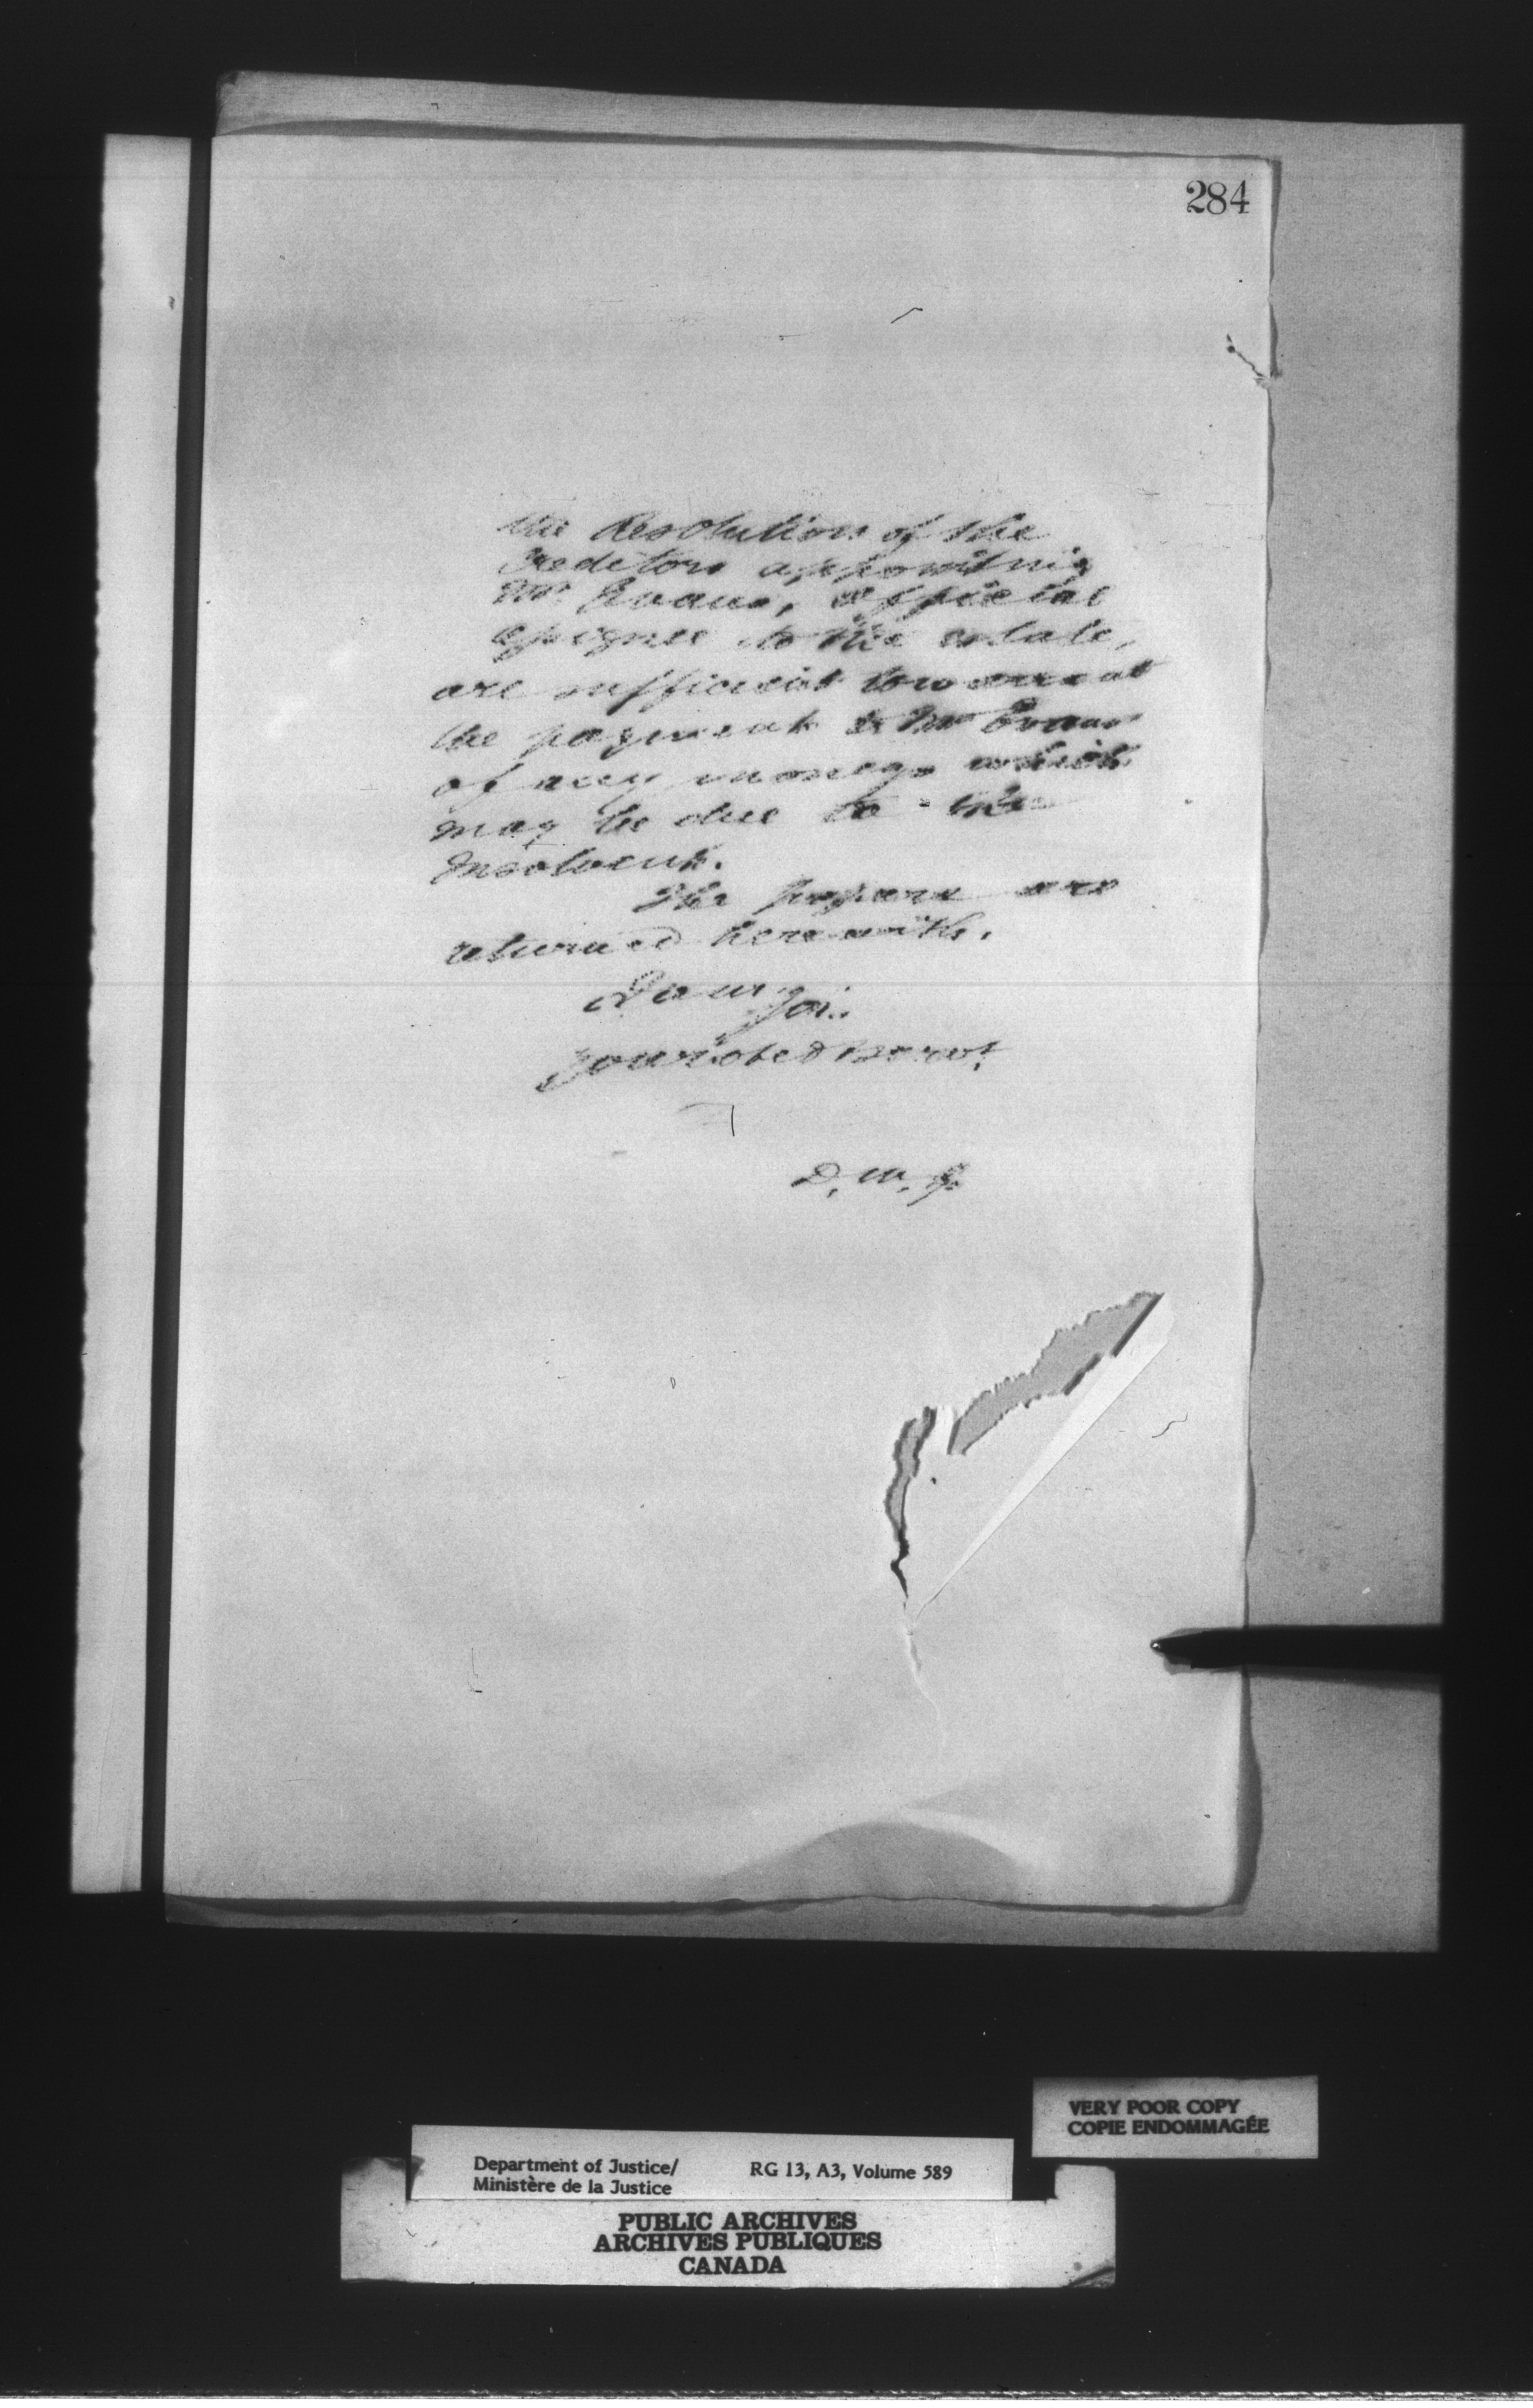 284
the Resolution of the
Creditors appointing
Mr. Evans, Official
Assignee to the estate,
are sufficient to warrant
the payment to Mr Evans
of any moneys which
may be due to the
Insolvent.
The papers are
returned herewith.
I am
Sir.
your obed serv't
D. M. J.
VERY POOR COPY
COPIE ENDOMMAGÉE
Department of Justice/ RG 13, A3, Volume 589
Ministère de la Justice
PUBLIC ARCHIVES
ARCHIVES PUBLIQUES
CANADA